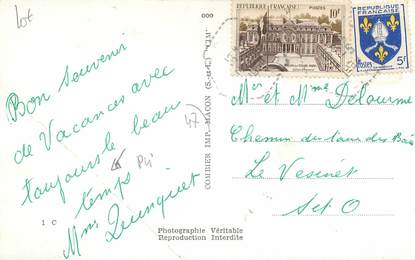 lot
Bon souvenir
de Vacances avec
toujours le beau
temps
Mme
Pli
47
1 C
000
COMBIER IMP. MACON (S.-&-L.) "CIM"
Photographie Véritable
Reproduction Interdite
REPUBLIQUE FRANÇAISE
POSTES
10F
REPUBLIQUE FRANÇAISE
5F
Mr et Mme Delourme
Chemin du tour des Bois
Le Vesinet
S et O